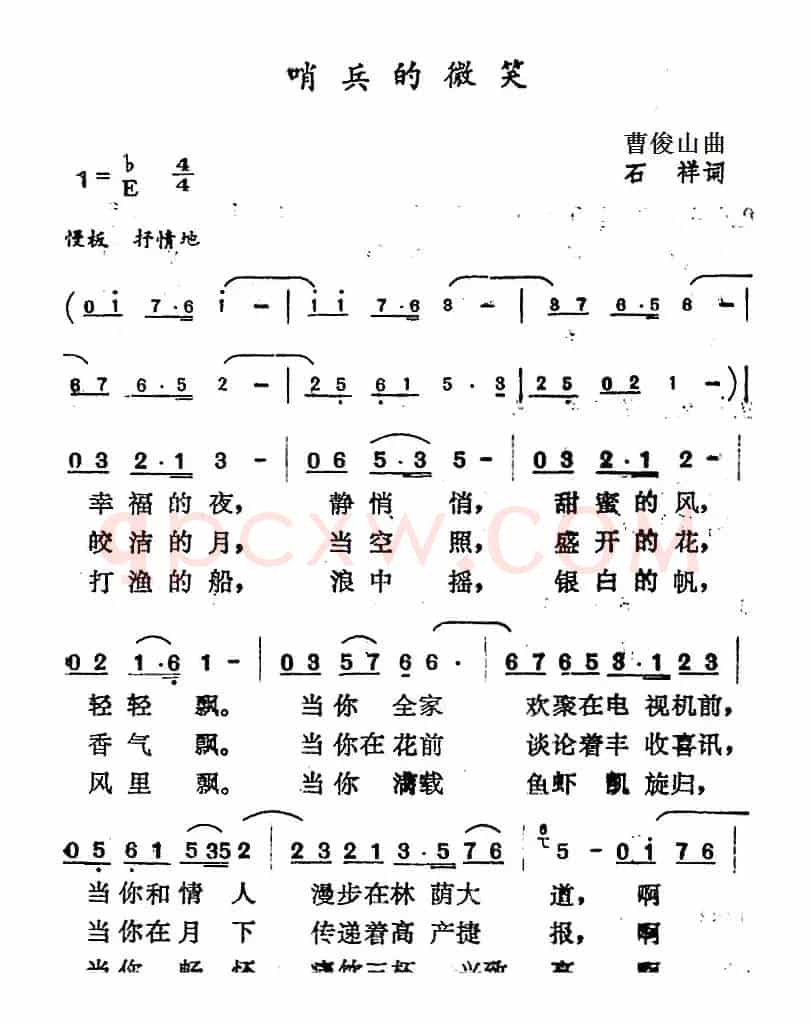 哨兵的微笑
曹俊山曲
1=bE 4/4
石祥词
慢板 抒情地
(0i 7·6 i - | ii 7·6 3 - | 37 6·5 6 - |
67 6·5 2 - | 25 61 5·3 | 25 02 1 -)|
03 2·1 3 - | 06 5·3 5 - | 03 2·1 2 -
幸福的夜, 静悄悄, 甜蜜的风,
皎洁的月, 当空照, 盛开的花,
打渔的船, 浪中摇, 银白的帆,
02 1·6 1 - | 03 57 6 6· | 67653·123
轻轻飘。 当你全家 欢聚在电视机前,
香气飘。 当你在花前 谈论着丰收喜讯,
风里飘。 当你满载 鱼虾凯旋归,
05 61 5352 | 2321 3·5 76 | 6 5 - 0i 76
当你和情人 漫步在林荫大道, 啊
当你在月下 传递着高产捷报, 啊
当你
qpcxw.COM